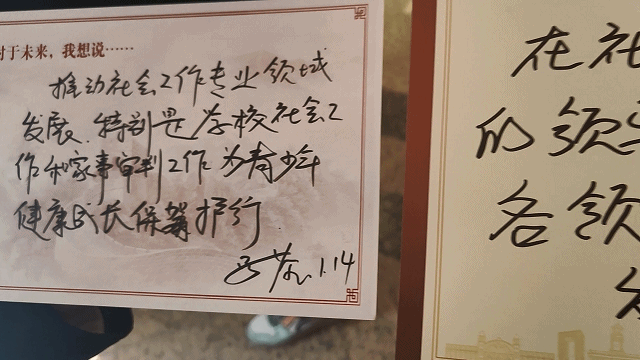 对于未来，我想说……
推动社会工作专业领域
发展.特别是学校社会工
作和家事审判工作为青少年
健康成长保驾护行
1.14
在社
的须
各领